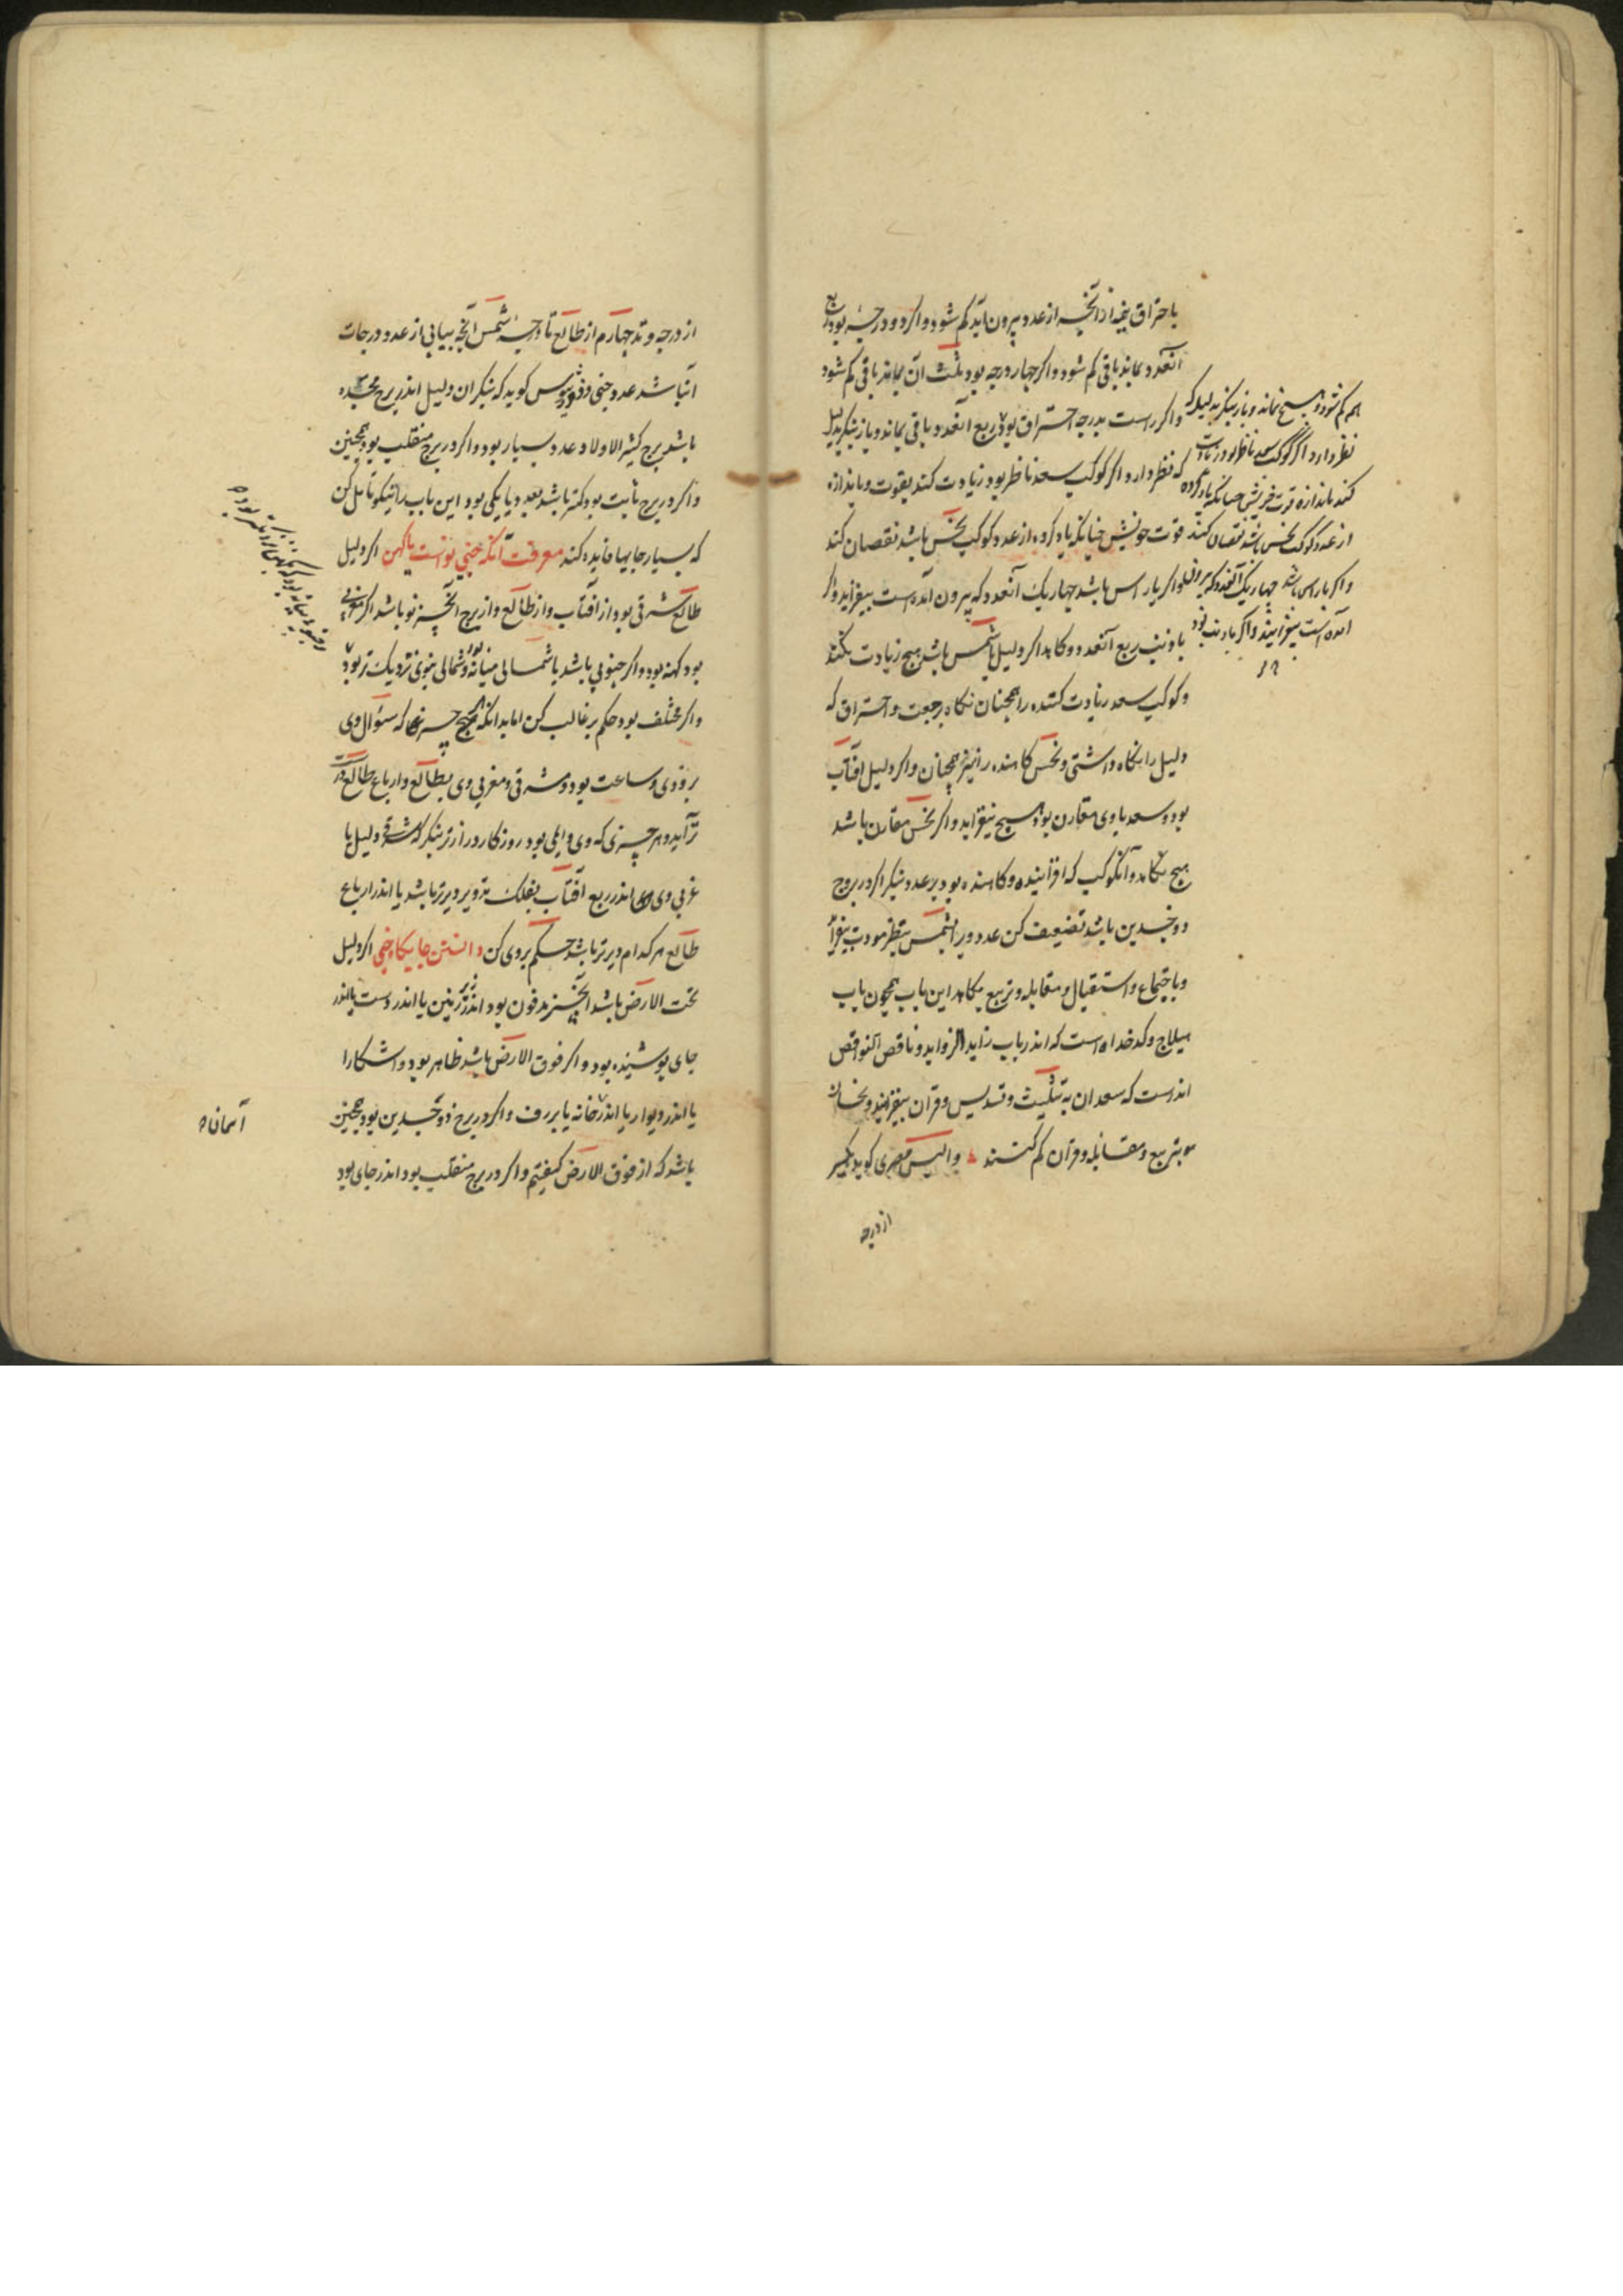 باحتراق نیمه از آنچه از عدد بیرون آید کم شود و اکر دو درجه بود ربع
آنعدد بماند باقی کم شود و اکر چهار درجه بود ثلث آن بماند باقی کم شود
و اکر راست بدرجه احتراق بود ربع آنعدد باقی بماند و باز بنکر بدلیل
که نظر دارد و اکر کوکب سعد ناظر بود زیادت کند بقوت و باندازه
قوت خویش چنانکه یاد کرده از عدد و کوکب نحس باشد نقصان کند
و اکر باراس باشد چهار یک آنعدد که بیرون آمده است بیفزاید و اکر
با ذنب ربع آنعدد و کاهد اکر دلیل با شمس باشد هیچ زیادت نکند
و کوکب سعد زیادت کننده را همچنان نکاه برجعت و احتراق که
دلیل را نکاه داشتی و نحس کاهنده را نیز همچنان و اکر دلیل آفتاب
بود و سعد با وی مقارن بود هیچ نیفزاید و اکر نحس مقارن باشد
هیچ نکاهد و آنکوکب که افزاینده و کاهنده بود بر عدد بنکر اکر در بروج
ذوجسدین باشد تضعیف کن عدد و را شمس بنظر مودت بیفزاید
و باجتماع و استقبال و مقابله و تربیع بکاهد این باب همچون باب
هیلاج و کدخداه است که اندر باب زاید الزواید و ناقص النواقص
اندرست که سعدان به تثلیث و تسدیس و قران بیفزایند و نحسان
بتربیع و مقابله و قران کم کنند والیس مصری کوید بکیر
از درجه
هم کم شود و هیچ نماند و باز بنکر بدلیل که
نظر دارد اکر کوکب سعد ناظر بود زیادت
کند باندازه قوت خویش چنانکه یاد کرده
از عدد و کوکب نحس باشد نقصان کند
و اکر باراس باشد چهار یک آنعدد که بیرون
آمده است بیفزایند و اکر با ذنب بود
از درجه وتد چهارم از طالع تا درجه شمس آنچه بیابی از عدد درجات
آنباشد عدد خبی کوید که بنکر ان دلیل اندر برج
باشد برج کثیر الاولاد عدد بسیار بود و اکر در برج منقلب بود همچنین
و اکر در برج ثابت بود کمتر باشد بعد و یا یکی بود این باب را نیکو تامل کن
که بسیار جایها فایده کند معرفت آنکه خبی نواست یا کهن اکر دلیل
طالع شرقی بود از آفتاب و از طالع و از برج آنچیز نو باشد اکر مغربی
بود کهنه بود و اکر جنوبی باشد یا شمالی میانه بود و شمالی بنوی نزدیک تر بود
و اکر مختلف بود حکم بر غالب کن اما بدانکه هیچ چیز که سئوال وی
بزودی و ساعت بود و مشرقی و مغربی وی بطالع و ارباع طالع درست
تر آید و هر چیزی که وی و بود روزکار دراز تر بنکر که شرقی دلیل یا
غربی وی اندر ربع آفتاب بفلک تدویر دیرتر باشد یا اندر ارباع
طالع هر کدام دیرتر باشد حکم بروی کن دانستن جایکاه خبی اکر دلیل
تحت الارض باشد آنچیز مدفون بود اندر زیر زمین یا اندر دست یا اندر
جای پوشیده بود و اکر فوق الارض باشد ظاهر بود و آشکارا
یا اندر دیوار یا اندر خانه یا بر رف و اکر در برج ذوجسدین بود همچنین
باشد که از فوق الارض کفتیم و اکر در برج منقلب بود اندر جای بود
آسمانه